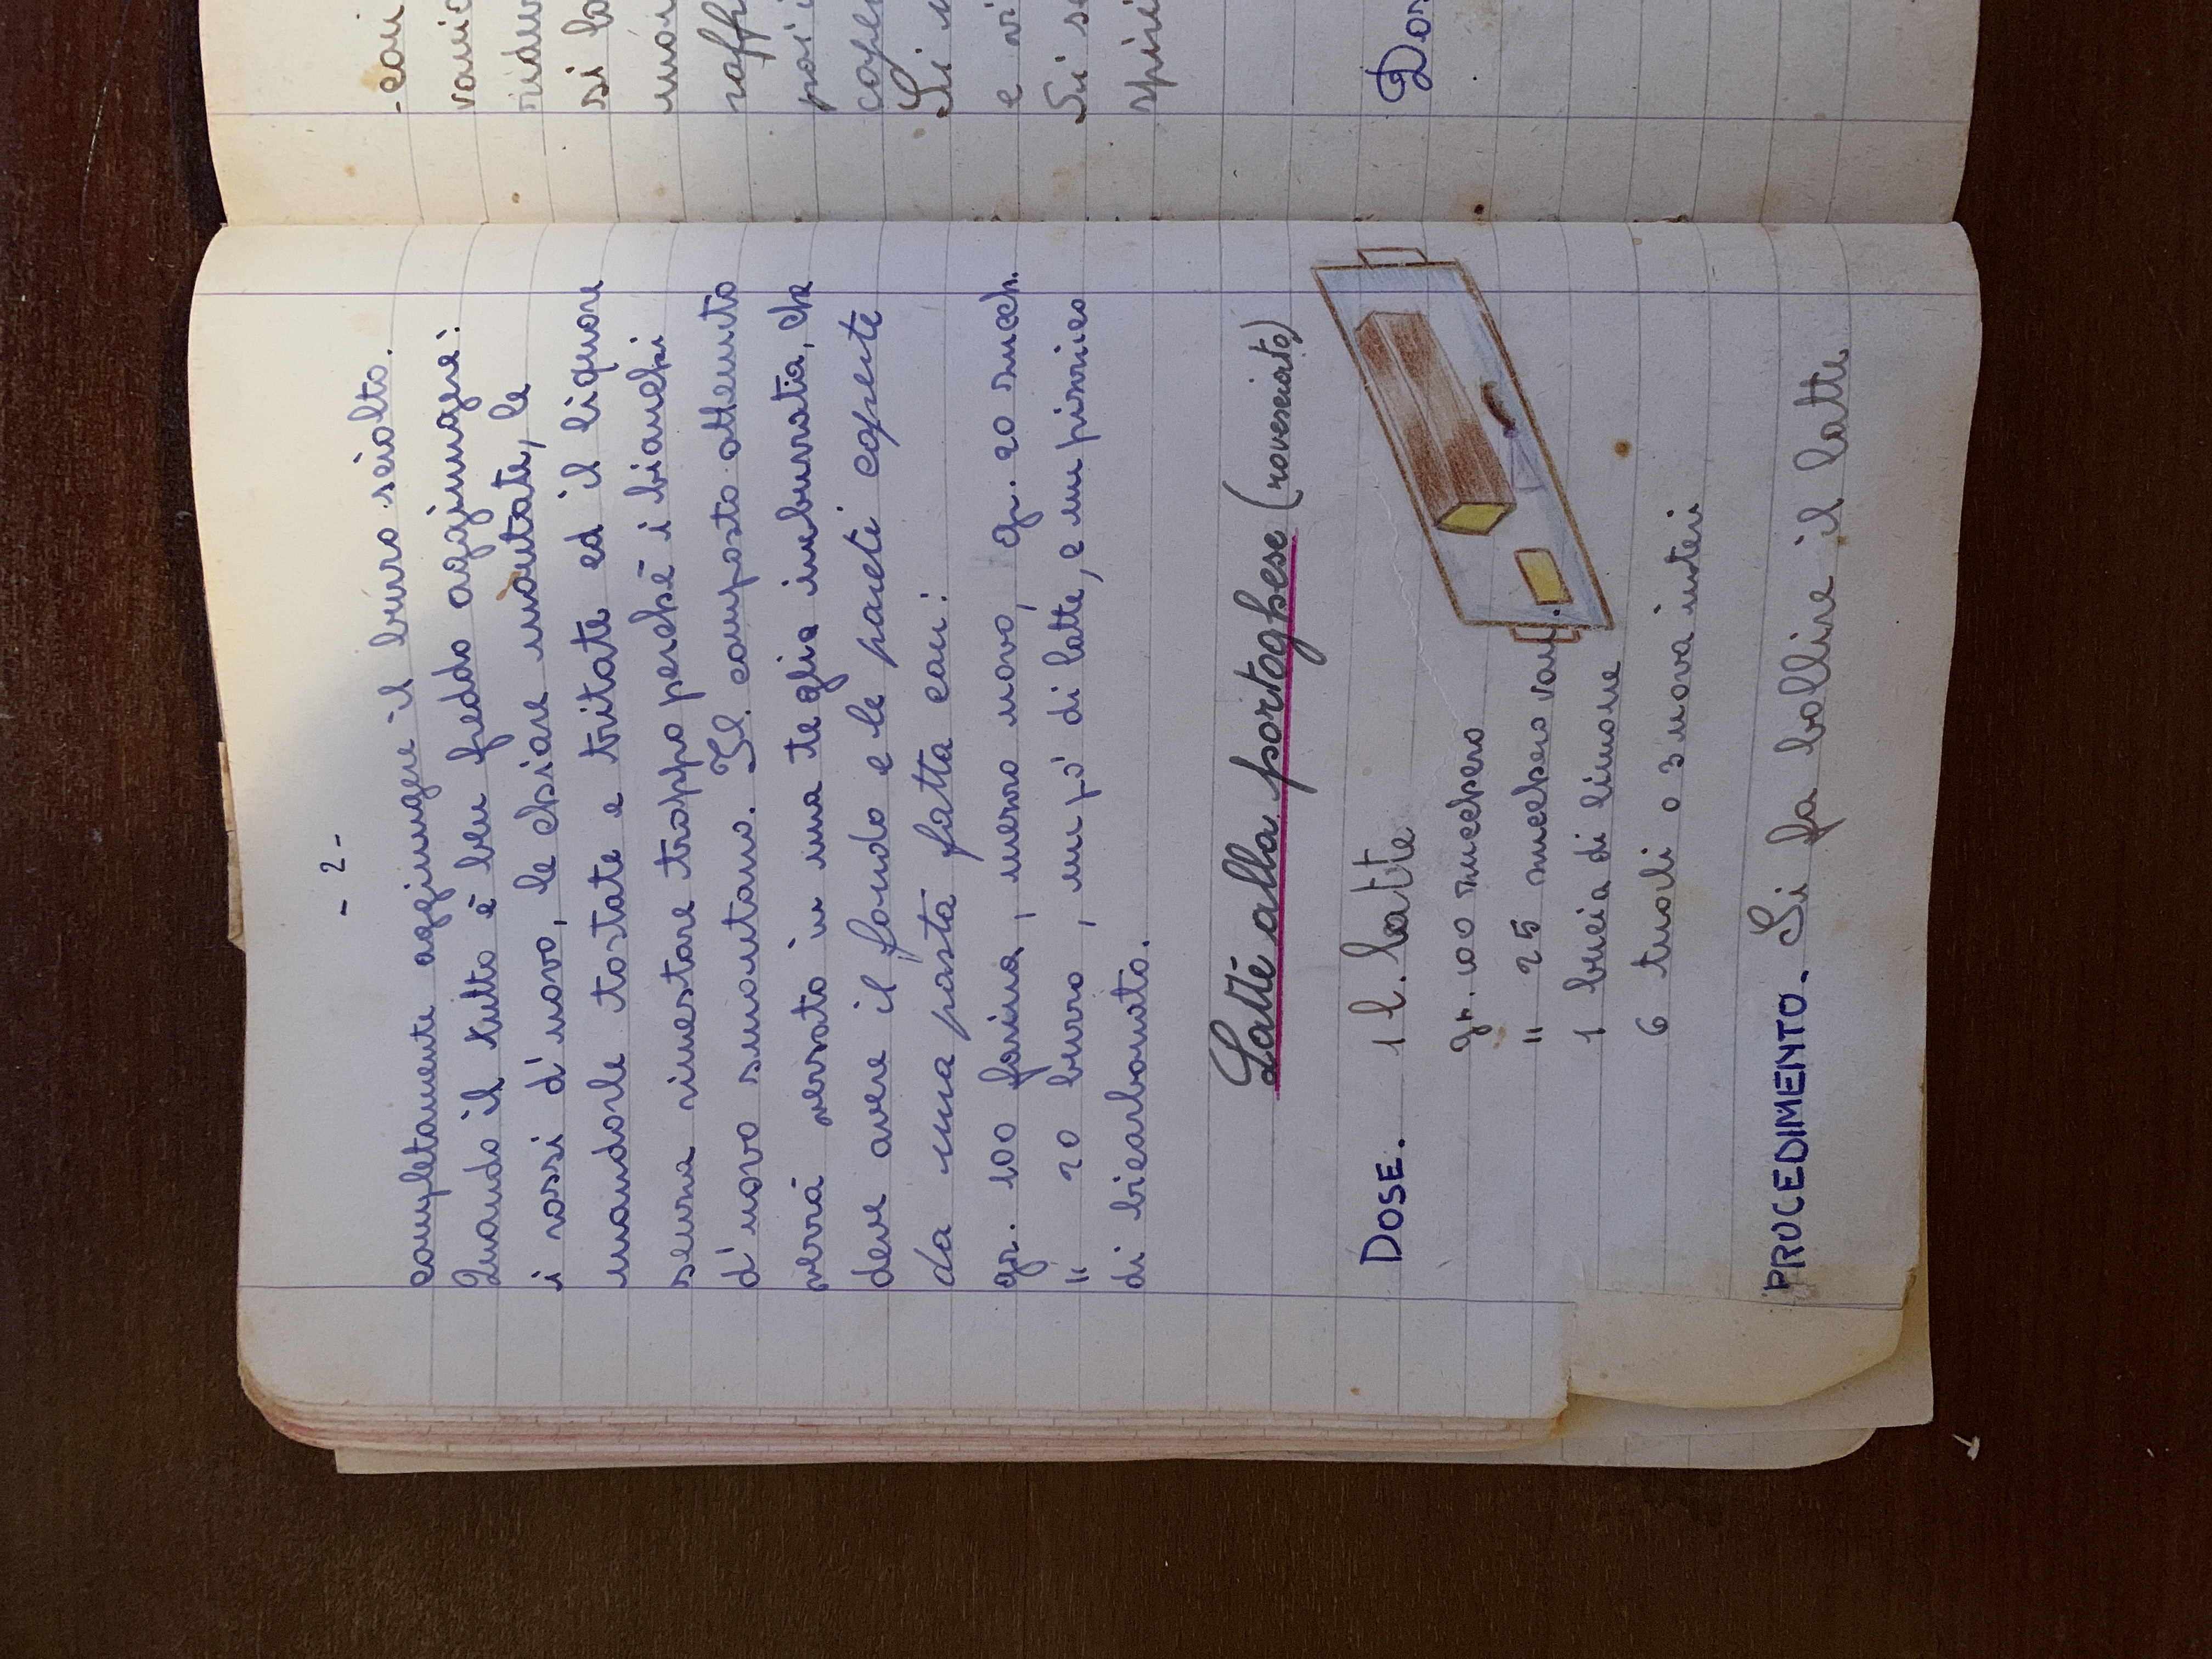 - 2 -
completamente aggiungere il burro sciolto.
Quando il tutto è ben freddo aggiungere:
i rossi d'uovo, le chiare montate, le
mandorle tostate e tritate ed il liquore
senza rimestare troppo perché i bianchi
d'uovo smontano. Il composto ottenuto
verrà versato in una teglia imburrata, che
deve avere il fondo e le pareti coperte
da una pasta fatta con:
gr. 100 farina, mezzo uovo, gr. 20 zucch.
" 20 burro, un pò di latte, e un pizzico
di bicarbonato.
Latte alla portoghese (rovesciato)
DOSE. 1 l. latte
gr. 100 zucchero
" 25 zucchero van.
1 bucia di limone
6 tuorli o 3 uova interi
PROCEDIMENTO. Si fa bollire il latte
- con
si
raff
poi
coper
Si
e vi
Si se
spiri
Dos